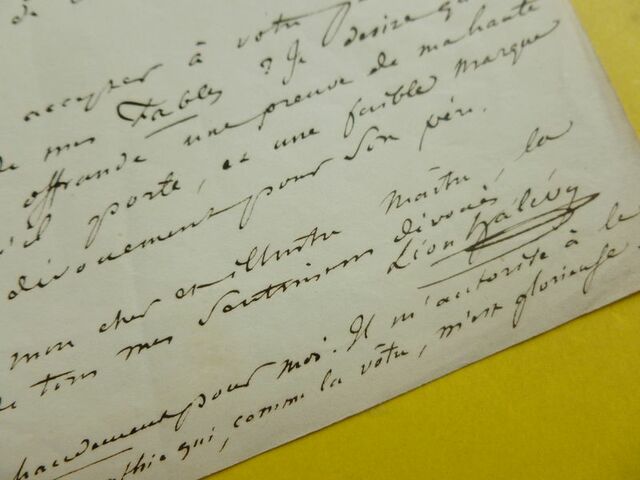 accepter à votre
mes Fables ? Je désire
offrande une preuve de ma haute
porte, et une faible marque
dévouement pour son père.
mon cher et illustre Maître, la
de tous mes sentimens dévoués
Léon Halévy
pour moi. Il m'autorise à le
qui, comme la vôtre, m'est glorieuse